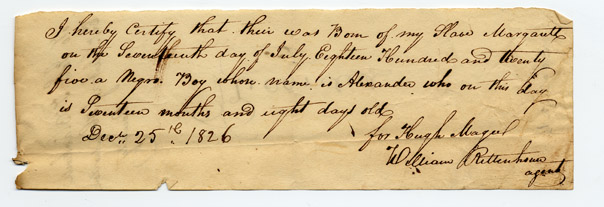 I hereby Certify that their was Born of my Slave Margarett
on the Seventeenth day of July Eighteen Hundred and twenty
five a Negro Boy whose name is Alexander who on this day
is Seventeen months and eight days old
Decr. 25th 1826 for Hugh
William Rittenhouse
agent